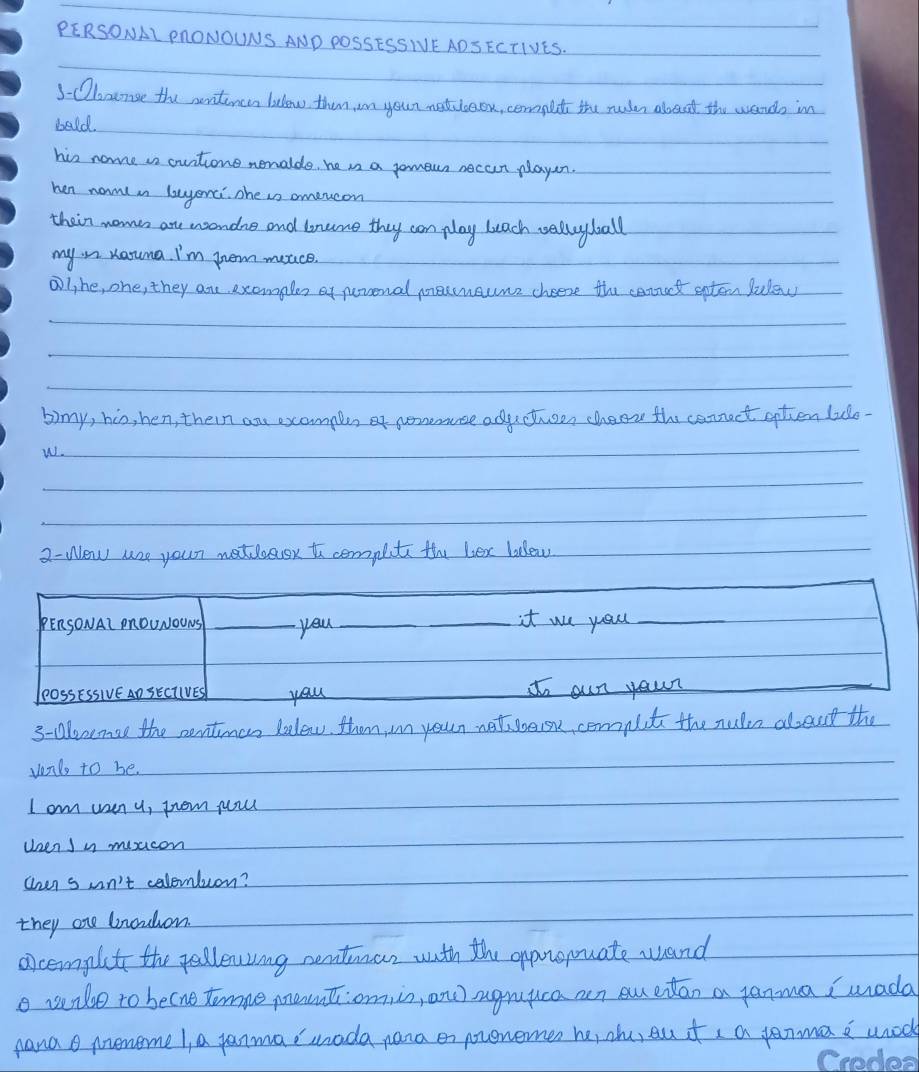 PERSONAL PRONOUNS AND POSSESSIVE ADJECTIVES.
1-Observe the sentences below then, in your notebook, complete the rules about the words in
bold.
his name is cristiano ronaldo. he is a famous soccer player.
her name is beyoncé. she is american
their names are evandro and bruno they can play beach volleyball
my is Karina. I'm from mexico.
a) I, he, she, they are examples of personal prounouns choose the correct opton below
b) my, his, her, their are examples of possessive adjectives choose the correct option belo-
w.
2-Now use your notebook to complete the box below
PERSONAL PROUNOUNS ____ you ____ ____ it we you ____
POSSESSIVE ADJECTIVES you its our your
3-Observe the sentences below then, in your notebook, complete the rules about the
verb to be.
I am user 4, from peru
User 1 is mexican
User 5 isn't colombian?
they are brazilian.
a) complete the following sentences with the appropriate word
o verbo to be (no tempo present: am, is, are) significa ser ou estar a forma é usada
para o pronome I, a forma é usada para os pronomes he, she, ou it e a forma é usad
Credea